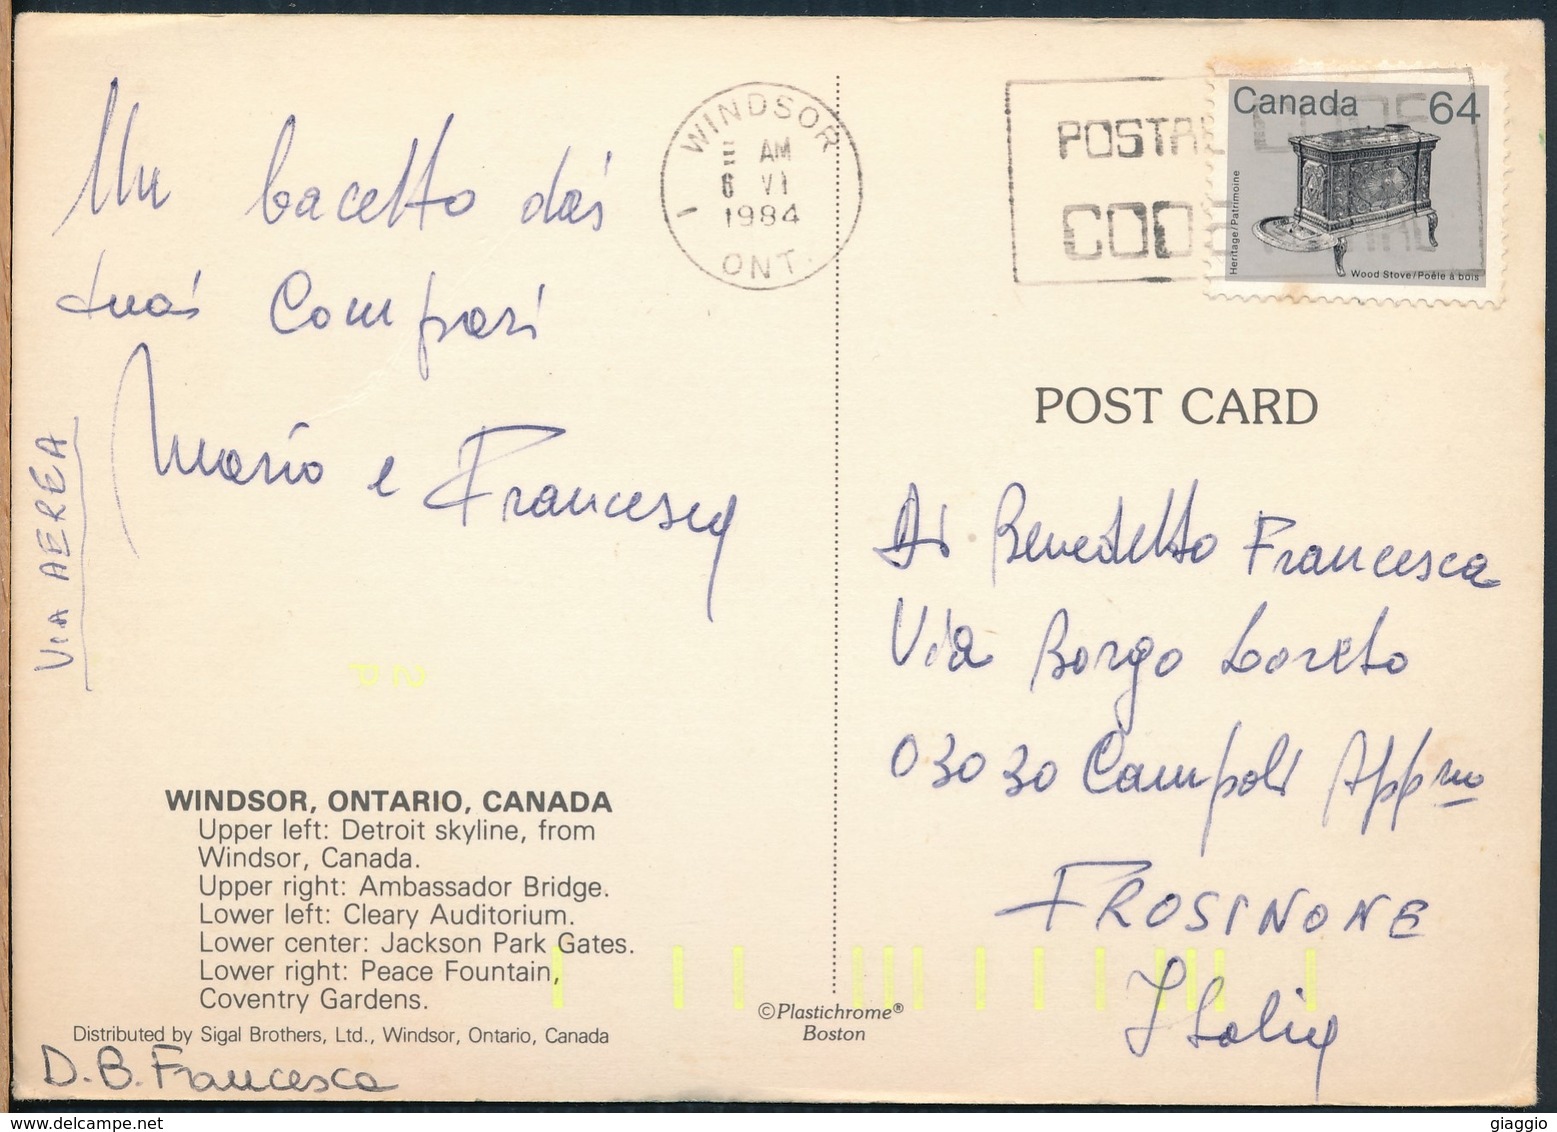 Un bacetto dai
tuoi Compari
Mario e Francesca
VIA AEREA
WINDSOR
AM
6 VI
1984
ONT.
POSTAL CODE
CODE POSTAL
Canada 64
Heritage/Patrimoine
Wood Stove/Poêle à bois
POST CARD
Di Benedetto Francesca
Via Borgo Loreto
03030 Campoli Appno
FROSINONE
Italia
WINDSOR, ONTARIO, CANADA
Upper left: Detroit skyline, from
Windsor, Canada.
Upper right: Ambassador Bridge.
Lower left: Cleary Auditorium.
Lower center: Jackson Park Gates.
Lower right: Peace Fountain,
Coventry Gardens.
Distributed by Sigal Brothers, Ltd., Windsor, Ontario, Canada
©Plastichrome®
Boston
D.B. Francesca
giaggio